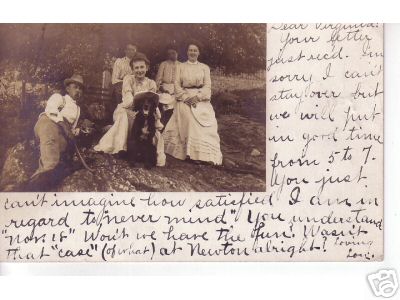 Dear Virginia:
Your letter
just rec'd. I'm
sorry I can't
stay over but
we will put
in good time
from 5 to 7.
You just
can't imagine how satisfied I am in
regard to "never mind". You understand
Won't we have the fun? Wasn't
that "case" (of what) at Newton alright? Loving
eBay